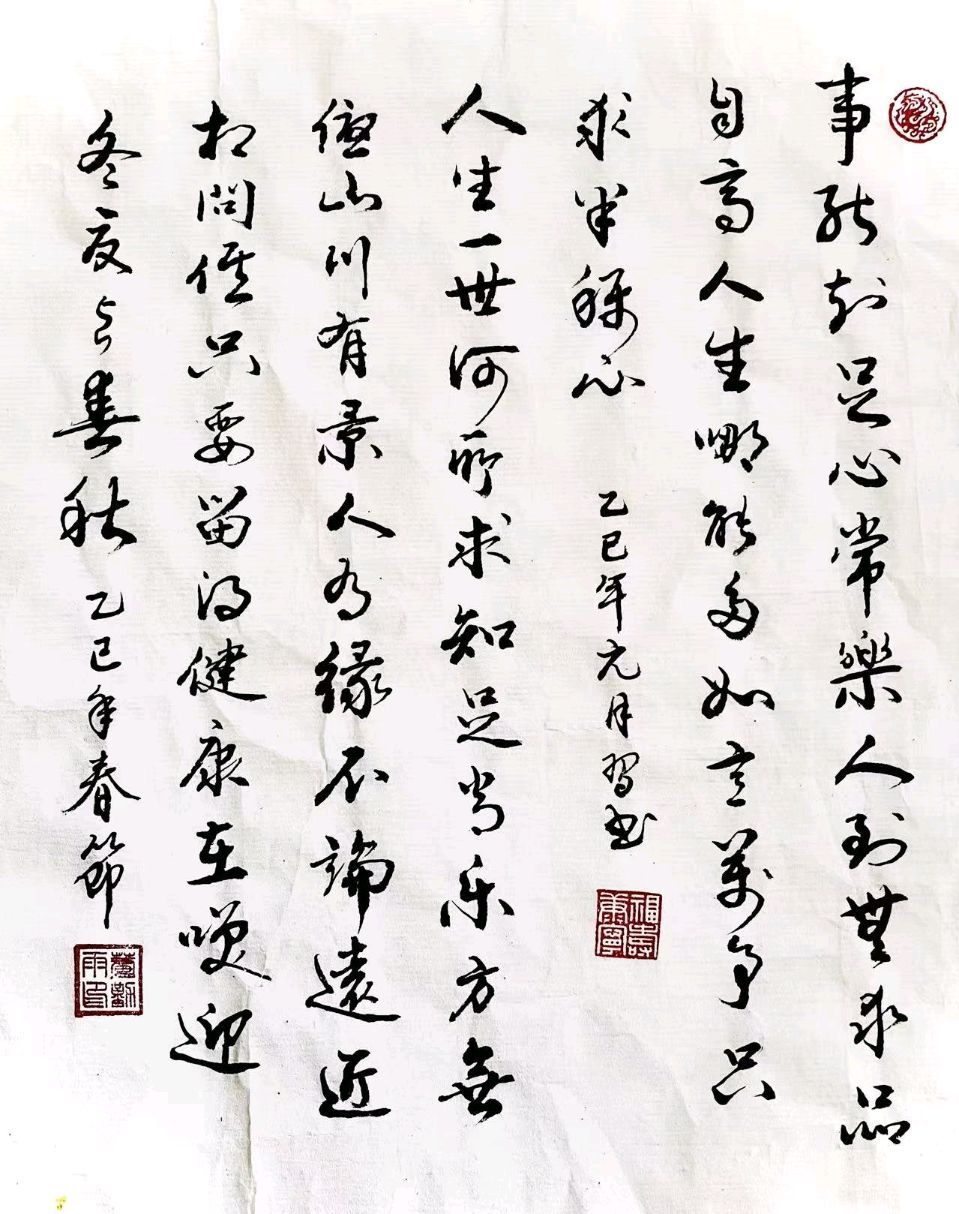 事能知足心常樂人到無求品
自高人生哪能多如意萬事只
求半稱心 乙巳年元月習书
福壽康寧
人生一世何所求知足常乐方無
山川有景人为缘不論遠近
相問候只要留得健康在咲迎
冬夏与春秋 乙巳年春節